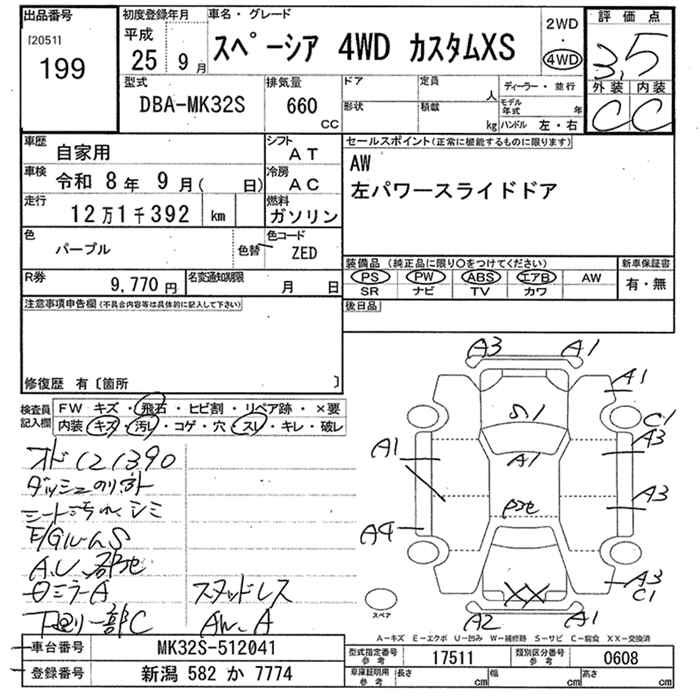 出品番号
[2051]
199
初度登録年月
平成
25 9 月
車名・グレード
スペーシア 4WD カスタムXS
2WD
・
4WD
評価点
3.5
外装 内装
C C
型式
DBA-MK32S
排気量
660
CC
ドア
形状
定員
人
積載
kg
ディーラー・並行
モデル年式 年
ハンドル 左・右
車歴
自家用
シフト
AT
車検
令和 8年 9月( 日)
冷房
AC
走行
12万1千392 km
燃料
ガソリン
色
パープル
色替
色コード
ZED
R券
9,770円
名変通知期限
月 日
セールスポイント(正常に機能するものに限ります)
AW
左パワースライドドア
装備品(純正品に限り○をつけてください)
PS PW ABS エアB AW
SR ナビ TV カワ
新車保証書
有・無
後日品
注意事項申告欄(不具合内容等は具体的に記入して下さい)
修復歴 有〔箇所 〕
検査員記入欄
FW キズ・飛石・ヒビ割・リペア跡・×要
内装・キズ・汚レ・コゲ・穴・スレ・キレ・破レ
オド121390
シート汚れシミ
E/GルームS
ミラーA
スタッドレス
下廻り一部C
AW.A
A3 A1
A1
S1
C1
A3
A1
A1
A3
A4
XX
A3
C1
A2 A1
スペア
A-キズ E-エクボ U-凹み W-補修跡 S-サビ C-腐食 XX-交換済
車台番号
MK32S-512041
登録番号
新潟 582 か 7774
型式指定番号
参考
17511
類別区分番号
参考
0608
車庫証明用
参考
長さ cm
幅 cm
高さ cm